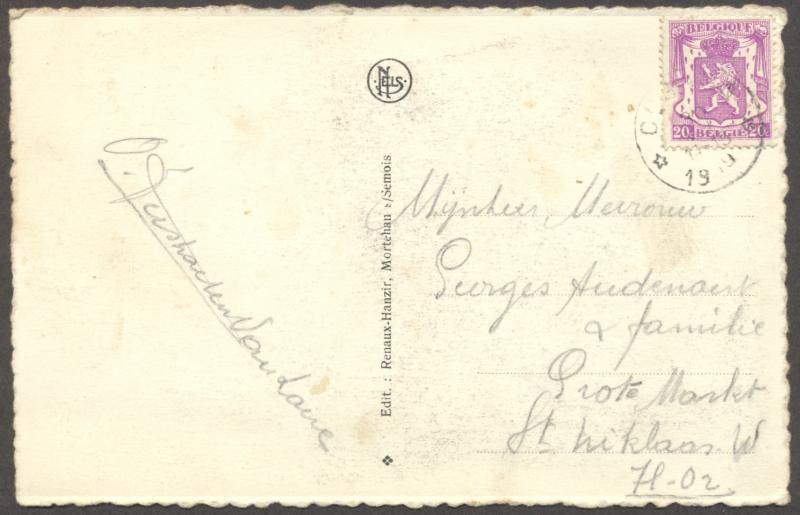 BELGIQUE
20c BELGIE 20c
19
NELS
Edit. : Renaux-Hanzir, Mortehan s/Semois
Mijnheer, Mevrouw
Georges Audenaert
& familie
Grote Markt
St Niklaas W
Fl-Or.